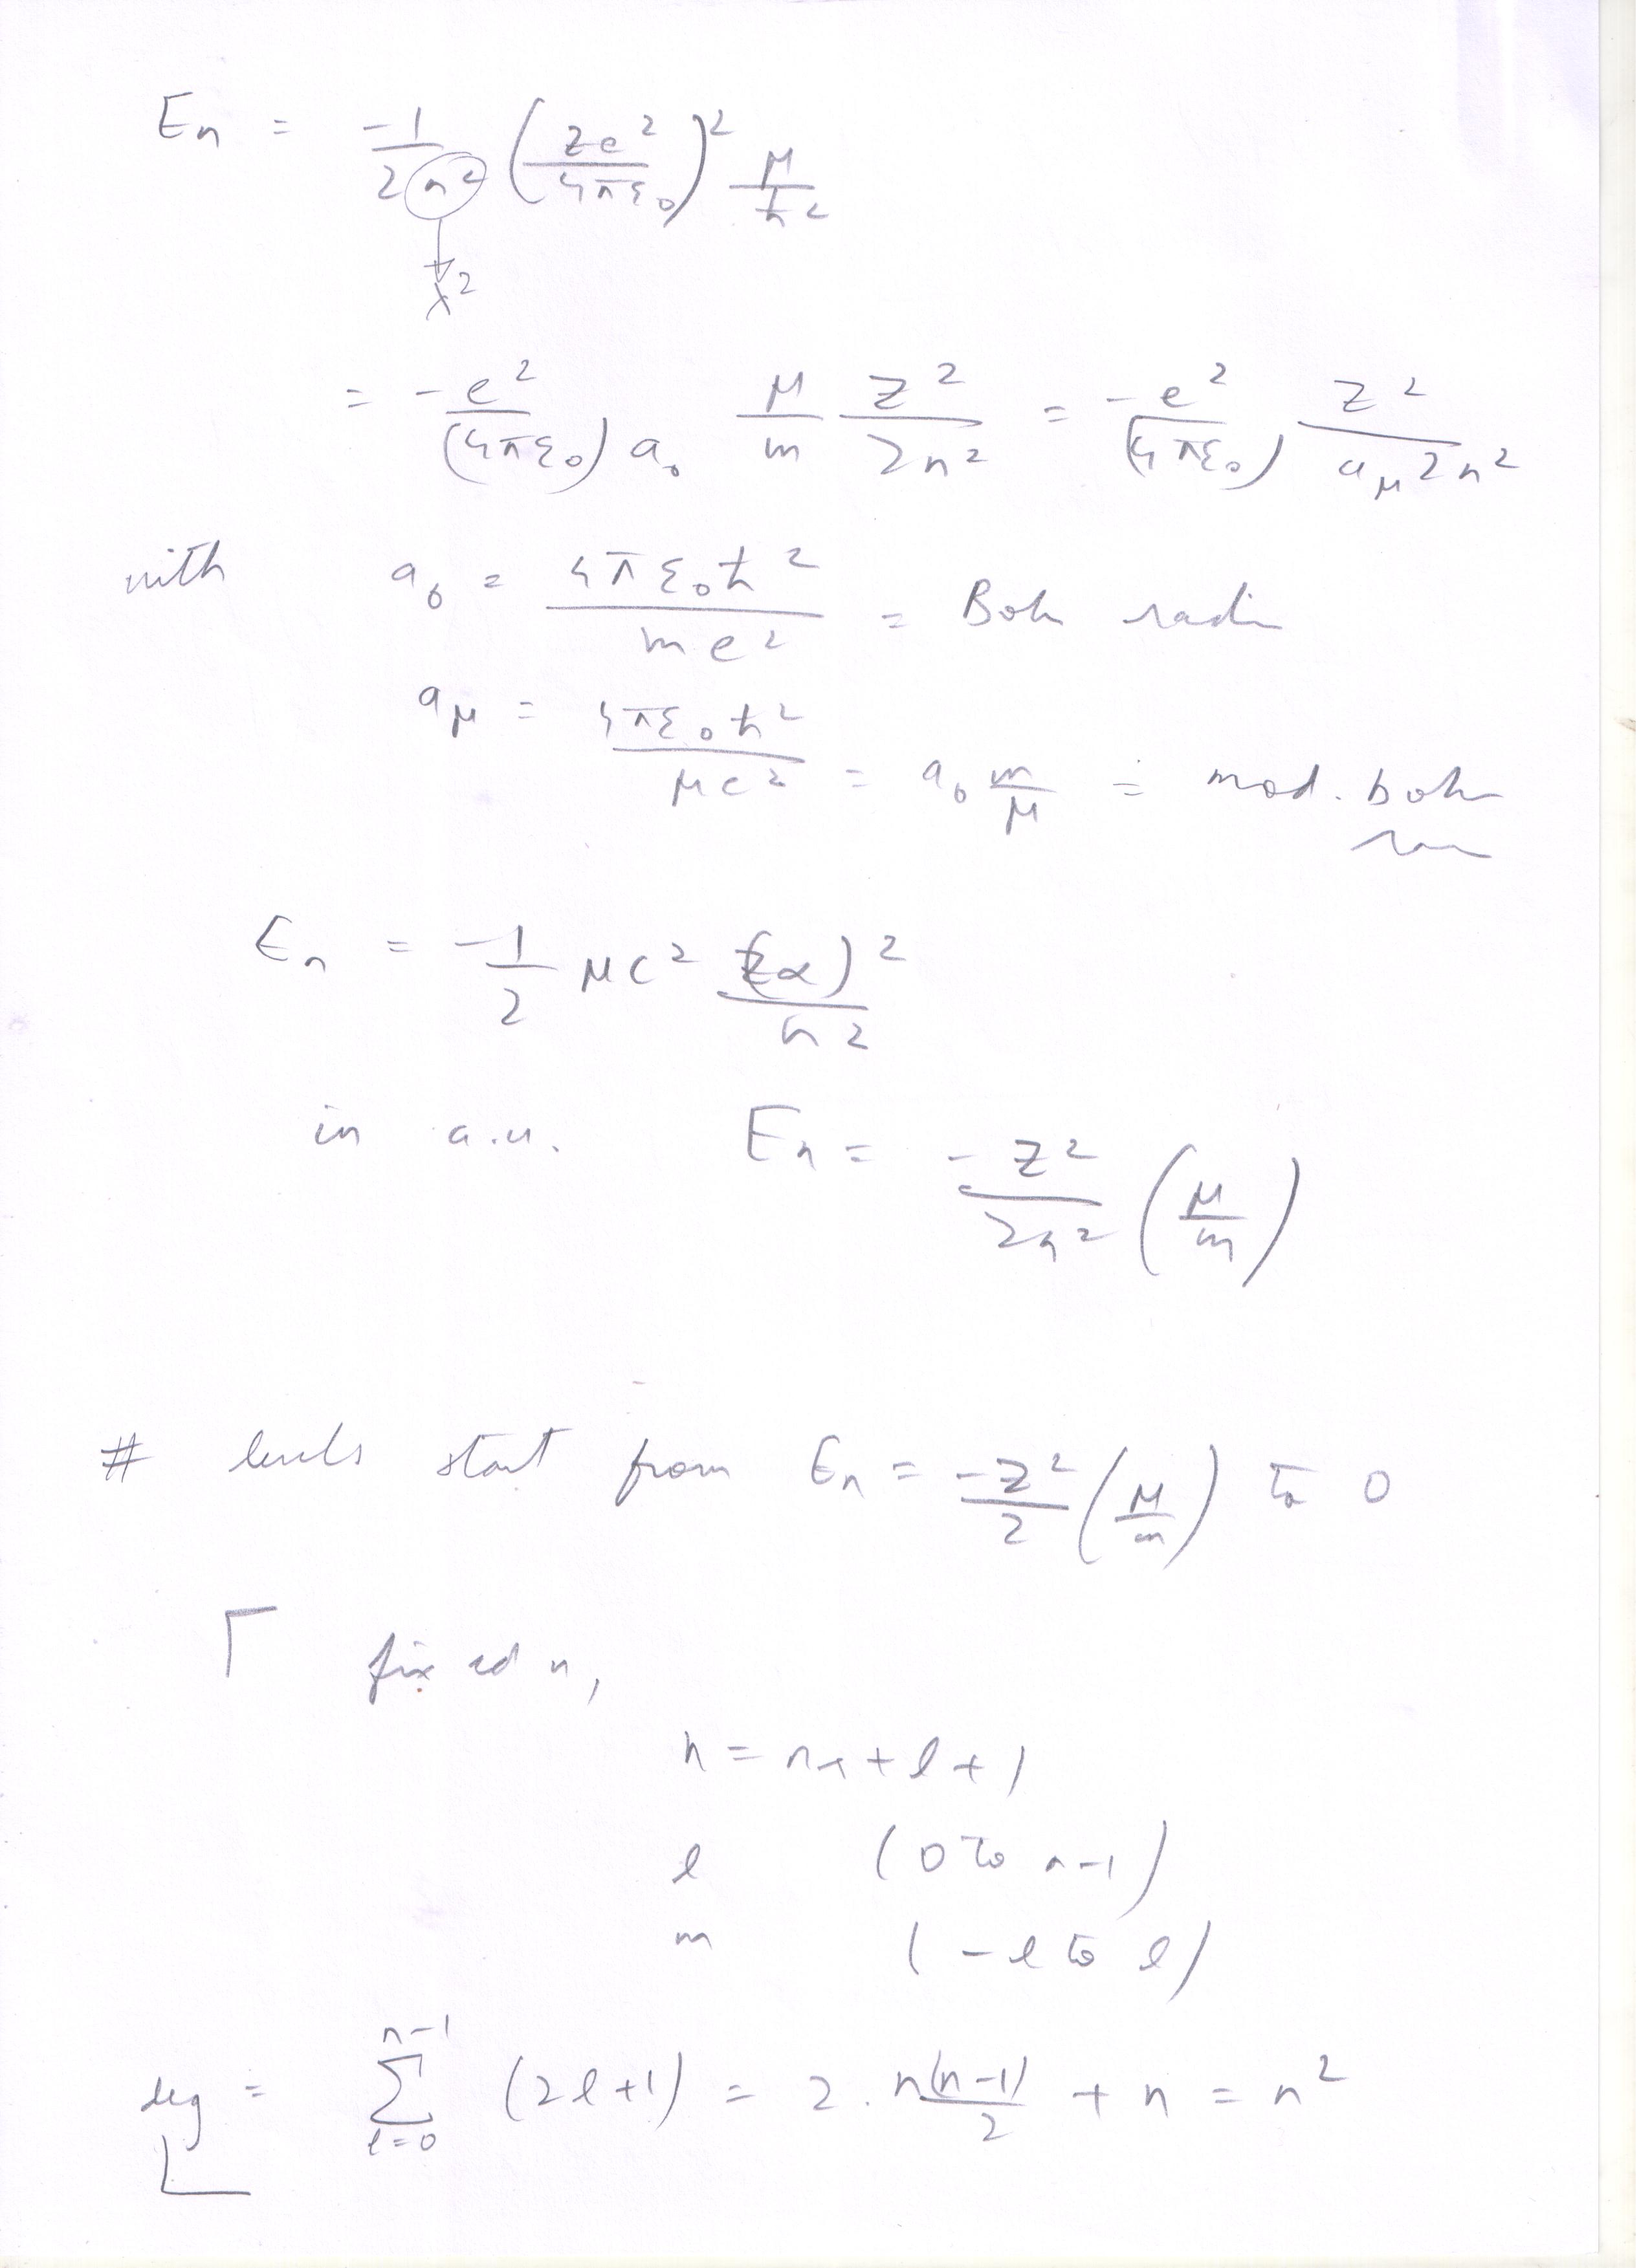 En = -1/(2n²) (Ze²/(4πε₀))² μ/ħ²
λ²
= -e²/((4πε₀) a₀) μ/m Z²/(2n²) = -e²/(4πε₀) Z²/(a_μ 2n²)
with a₀ = 4πε₀ħ²/(me²) = Bohr radi
a_μ = 4πε₀ħ²/(μe²) = a₀ m/μ = mod. bohr
En = -1/2 μc² (Zα)²/n²
in a.u. En = -Z²/(2n²) (μ/m)
# levels start from En = -Z²/2 (μ/m) to 0
fixed n,
n = nr + l + 1
l (0 to n-1)
m (-l to l)
deg = Σ_{l=0}^{n-1} (2l+1) = 2. n(n-1)/2 + n = n²